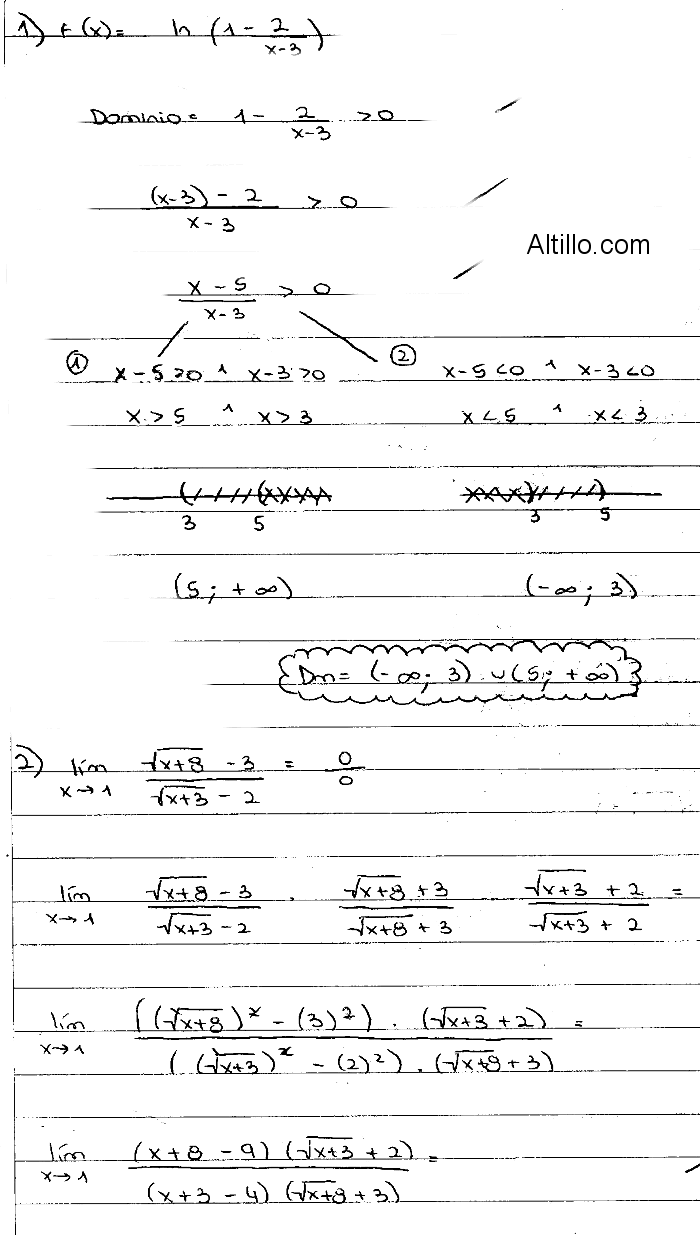 1) f(x) = ln (1 - 2/(x-3))
Dominio = 1 - 2/(x-3) > 0
((x-3) - 2)/(x-3) > 0
Altillo.com
(x-5)/(x-3) > 0
① x-5>0 ^ x-3>0 ② x-5<0 ^ x-3<0
x>5 ^ x>3 x<5 ^ x<3
3 5 3 5
(5; +∞) (-∞; 3)
Dm= (-∞; 3) ∪ (5; +∞)
2) lím x→1 (√(x+8) - 3)/(√(x+3) - 2) = 0/0
lím x→1 (√(x+8) - 3)/(√(x+3) - 2) . (√(x+8) + 3)/(√(x+8) + 3) (√(x+3) + 2)/(√(x+3) + 2) =
lím x→1 ((√(x+8))² - (3)²) . (√(x+3) + 2)/((√(x+3))² - (2)²) . (√(x+8) + 3) =
lím x→1 (x+8-9) (√(x+3) + 2)/(x+3-4) (√(x+8) + 3) =